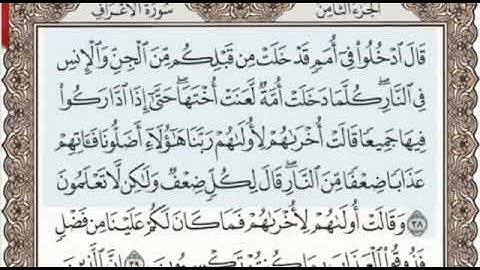 الجزء الثامن
سورة الأعراف
قَالَ ٱدْخُلُوا۟ فِىٓ أُمَمٍ قَدْ خَلَتْ مِن قَبْلِكُم مِّنَ ٱلْجِنِّ وَٱلْإِنسِ
فِى ٱلنَّارِ ۖ كُلَّمَا دَخَلَتْ أُمَّةٌ لَّعَنَتْ أُخْتَهَا ۖ حَتَّىٰٓ إِذَا ٱدَّارَكُوا۟
فِيهَا جَمِيعًا قَالَتْ أُخْرَىٰهُمْ لِأُولَىٰهُمْ رَبَّنَا هَٰٓؤُلَآءِ أَضَلُّونَا فَـَٔاتِهِمْ
عَذَابًا ضِعْفًا مِّنَ ٱلنَّارِ ۖ قَالَ لِكُلٍّ ضِعْفٌ وَلَٰكِن لَّا تَعْلَمُونَ
٣٨ وَقَالَتْ أُولَىٰهُمْ لِأُخْرَىٰهُمْ فَمَا كَانَ لَكُمْ عَلَيْنَا مِن فَضْلٍ
فَذُوقُوا۟ ٱلْعَذَابَ بِمَا كُنتُمْ تَكْسِبُونَ ٣٩ إِنَّ ٱلَّذِينَ